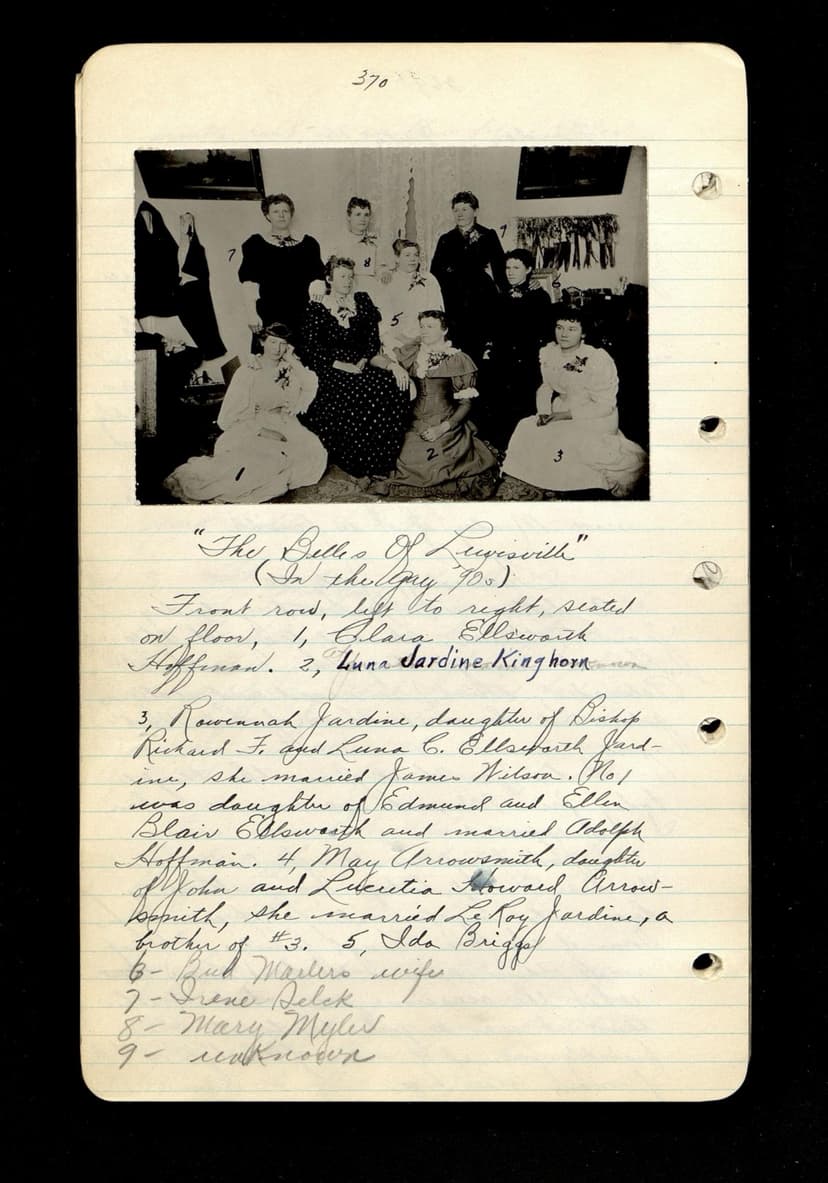 370
7
8
9
5
6
1
2
3
"The Belles Of Lewisville"
(In the gay '90s)
Front row, left to right, seated
on floor, 1, Clara Ellsworth
Hoffman. 2, Luna Jardine Kinghorn
3, Rowennah Jardine, daughter of Bishop
Richard F. and Luna C. Ellsworth Jard-
ine, she married James Wilson. No 1
was daughter of Edmund and Ellen
Blair Ellsworth and married Adolph
Hoffman. 4, May Arrowsmith, daughter
of John and Lucretia Howard Arrow-
smith, she married LeRoy Jardine, a
brother of #3. 5, Ida Briggs
6- Bud Marlers wife
7- Irene Selck
8- Mary Myler
9- unknown